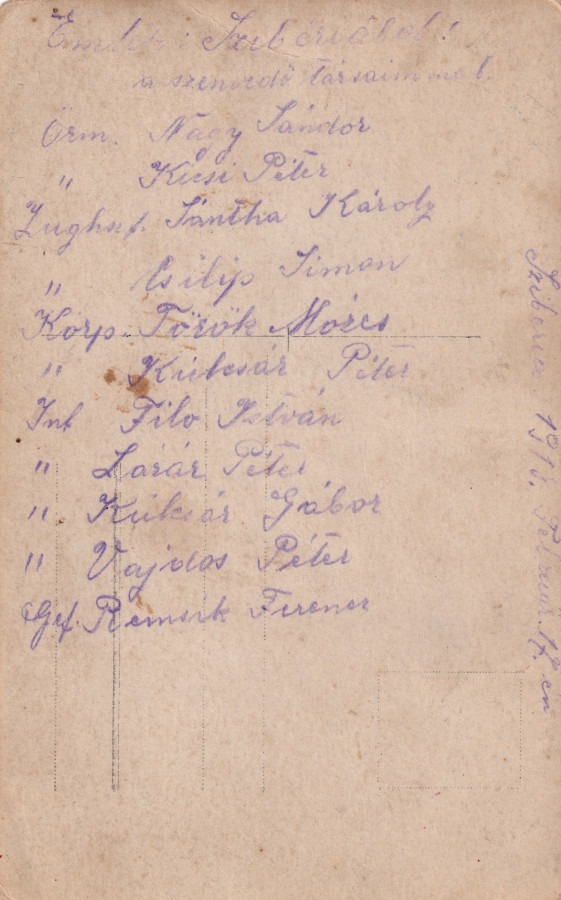 Emlék Szibériából!
a szenvedő társaimmal.
Örm. Nagy Sándor
" Kicsi Péter
Zughsf. Sántha Károly
" Csilip Simon
Korp. Török Mózes
" Kulcsár Péter
Inf Filo István
" Lázár Péter
" Kulcsár Gábor
" Vajdos Péter
Gef. Remenk Ferencz
Sziberia Február 17. én